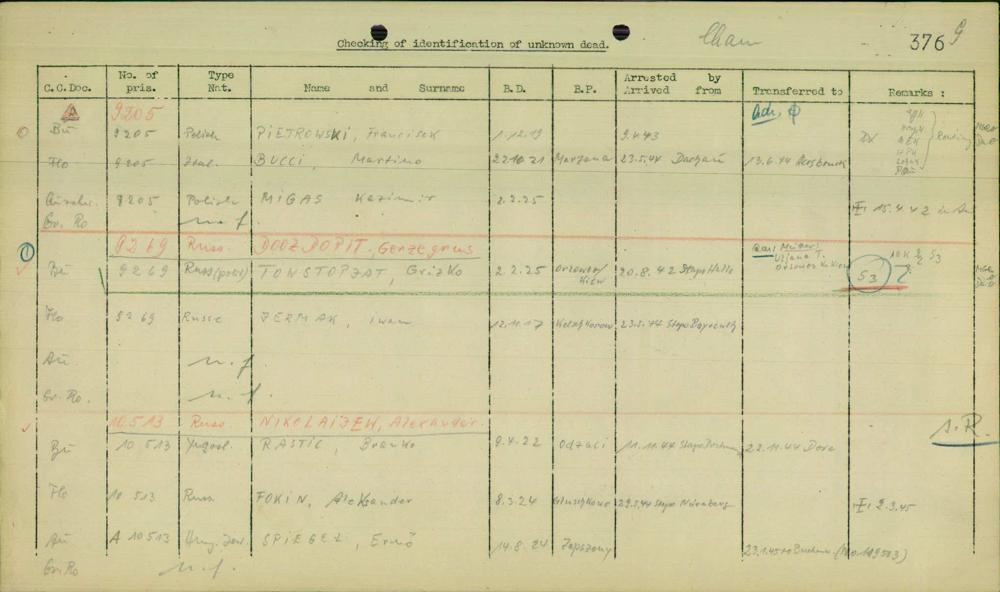 Cham
Checking of identification of unknown dead.
376 9
C.C.Doc. No. of pris. Type Nat. Name and Surname B.D. B.P. Arrested by Arrived from Transferred to Remarks :
9205
Bu 9205 Polish PIETROWSKI, Francisek 1.12.19 9.4.43
Flo 9205 Ital. BUCCI, Martino 22.10.21 Marzana 23.5.44 Dachau 13.6.44 Hersbruck
9205 Polish MIGAS Kazimir 2.2.25 15.4.42 in Au
Gr. Ro n.f.
9269 Russ. DOOZDOPIT, Gerzegnus
Bu 9269 Russ (polit) TOWSTOPJAT, Grizko 2.2.25 Kiew 20.8.42 Stapo Halle 53
Flo 9269 Russe JERMAK, iwan 12.11.17 23.5.44 Stapo Bayreuth
Au. n.f.
Gr. Ro. n.f.
10.513 Russ NIKOLAIJEW, Alexander.
s.R
Bu 10 513 Yugosl. RASTIC, Branko 9.4.22 Odzaci 11.11.44 Stapo 22.11.44 Dora
Flo 10 513 Russ FOKIN, Aleksander 8.3.24 Gluschkowo 29.5.44 Stapo Nürnberg 2.3.45
Au A 10513 Hung. Jew. SPIEGEL, Ernö 14.8.24 23.1.45 to Buchenw. (No.
Gr. Ro n.f.